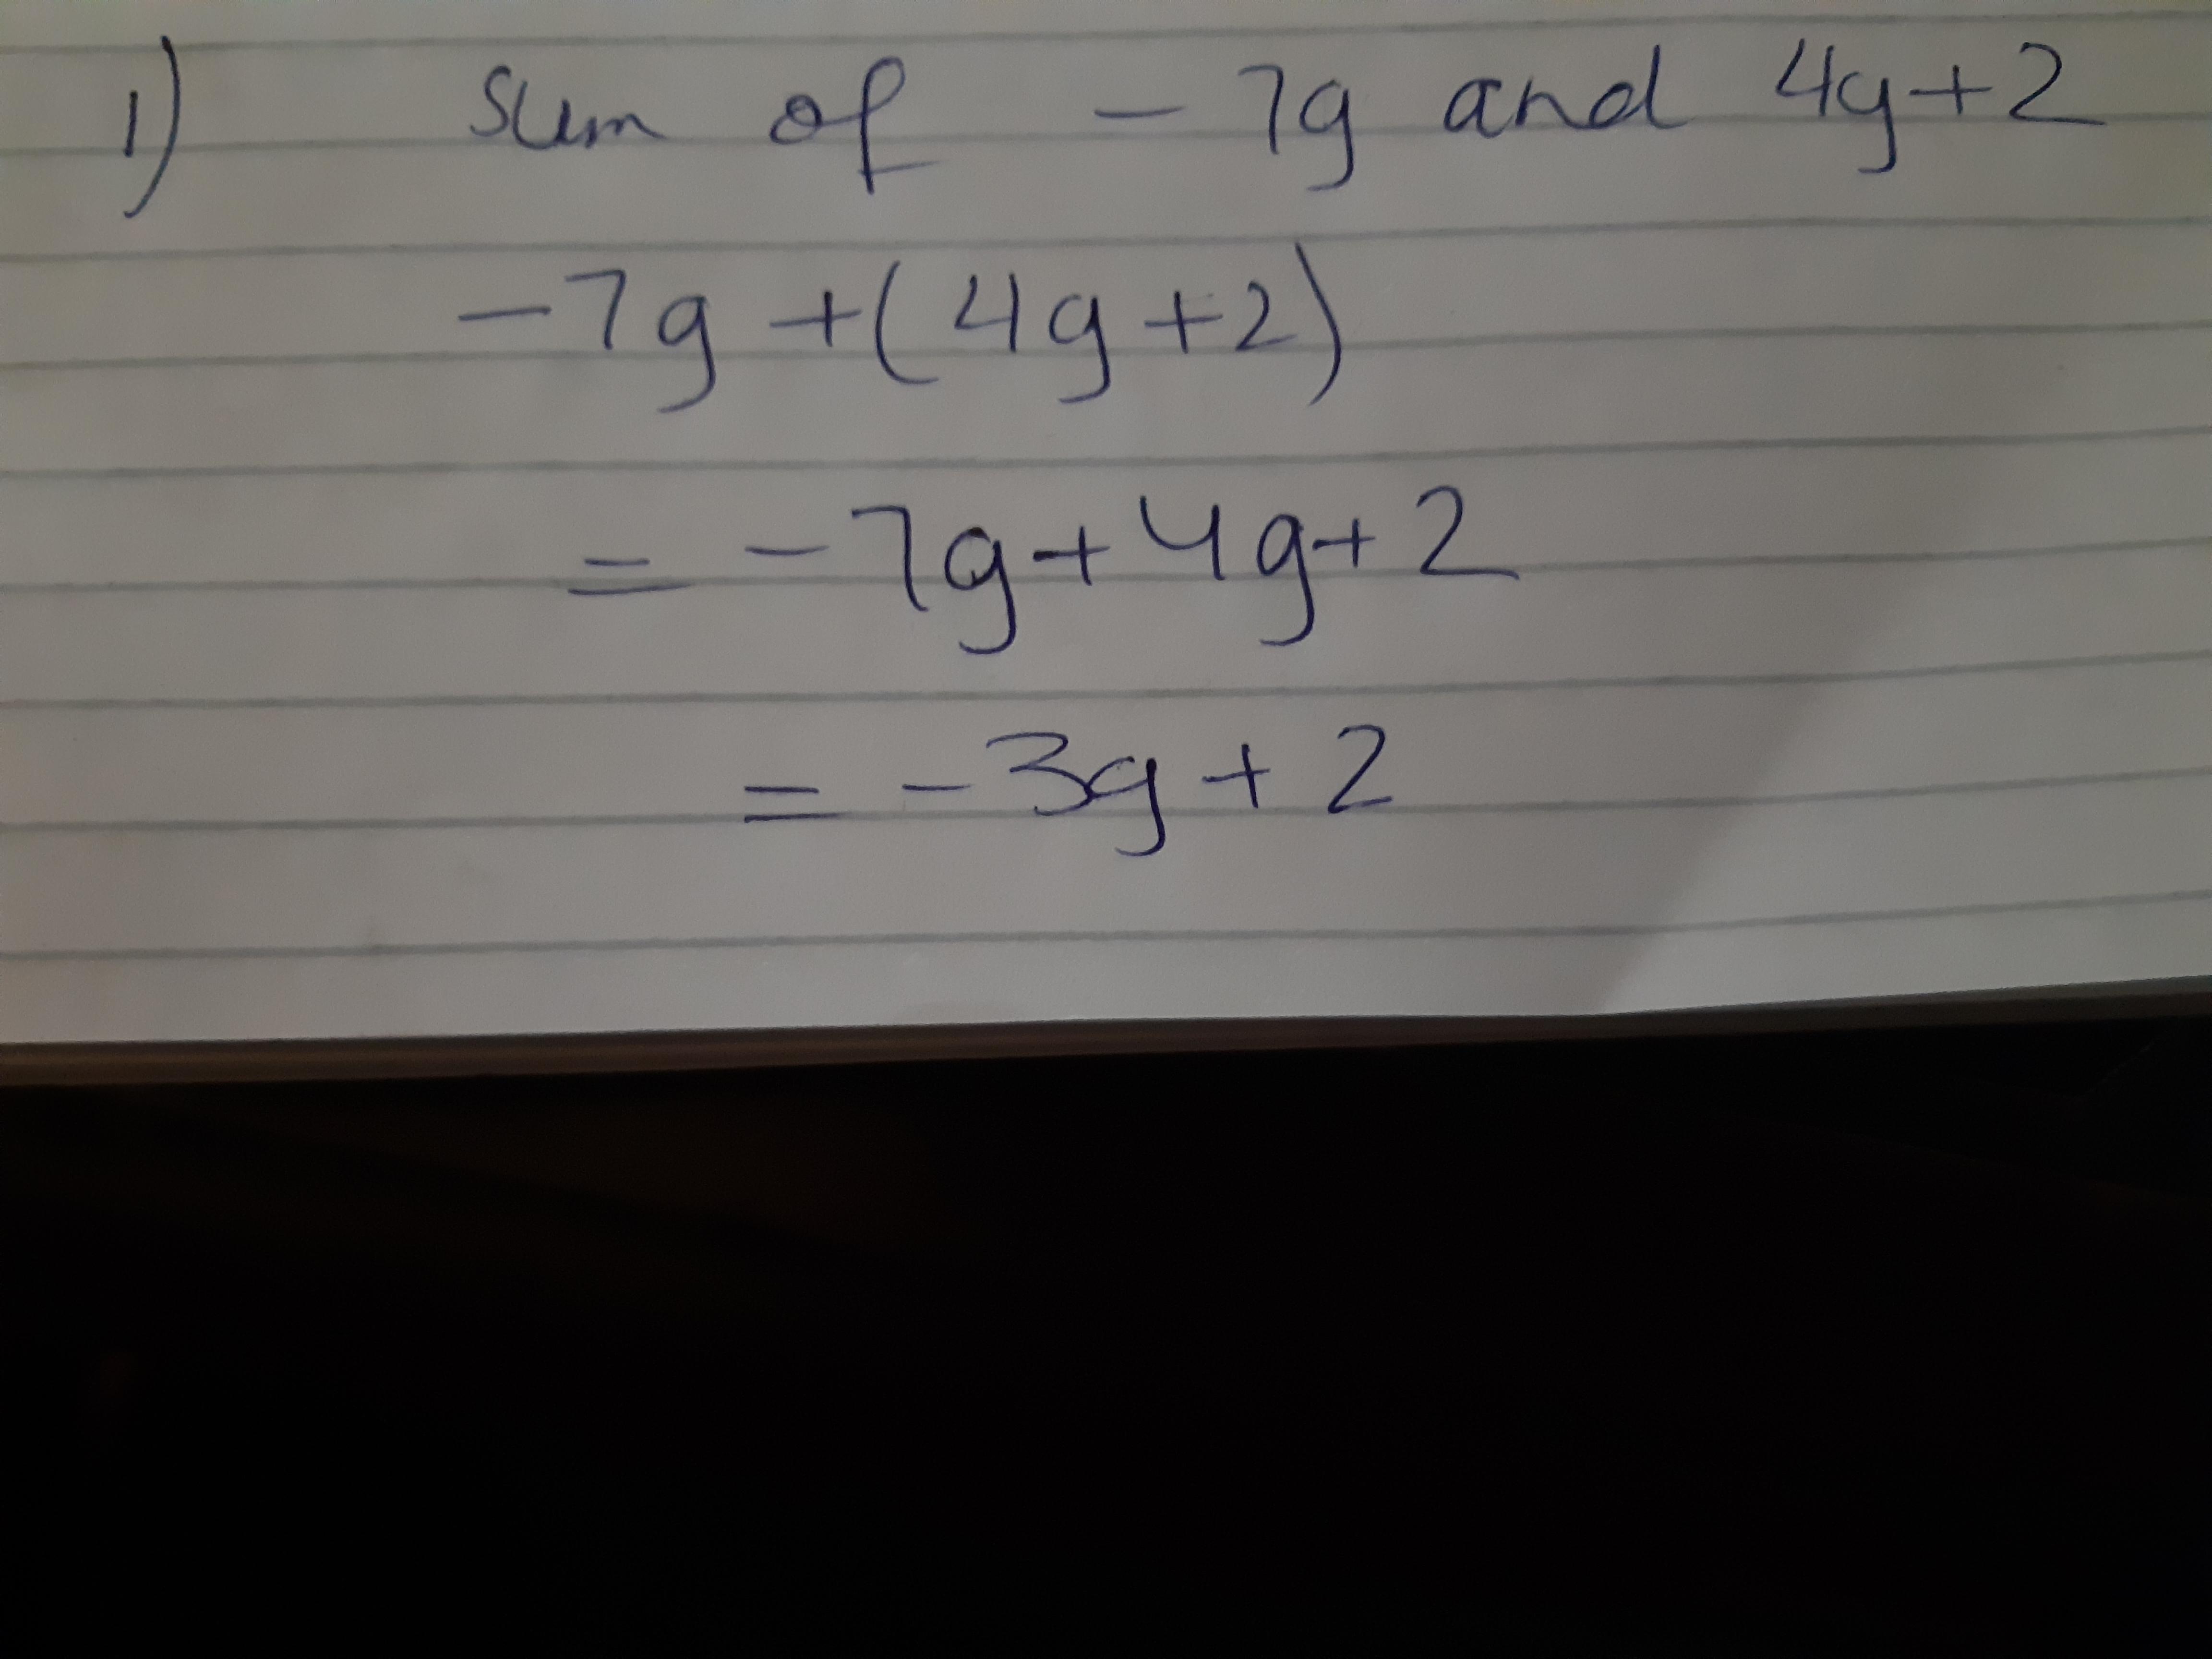 1) Sum of - 7g and 4g+2
-7g +(4g+2)
= -7g+4g+2
= -3g+2